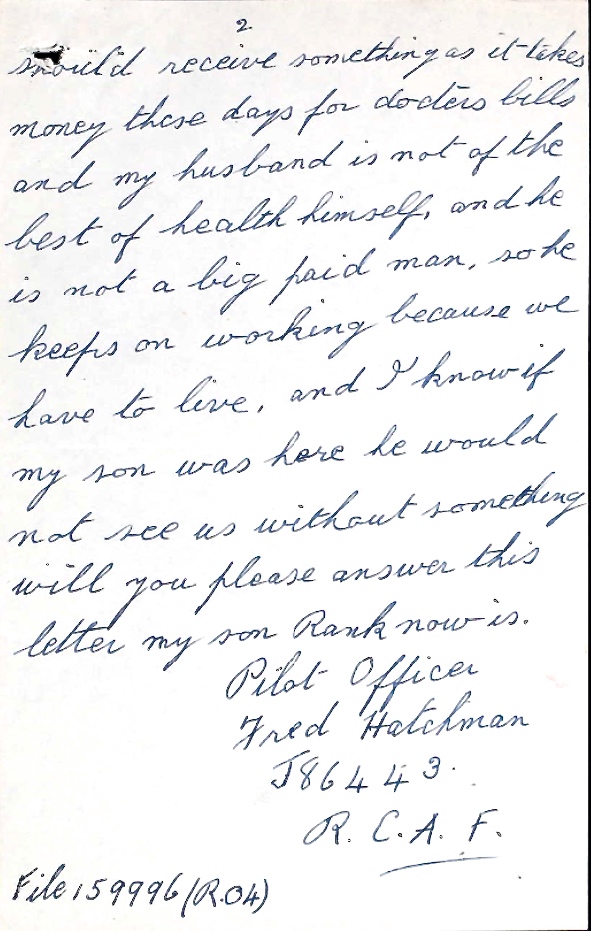 2
should receive something as it takes
money these days for docters bills
and my husband is not of the
best of health himself, and he
is not a big paid man, so he
keeps on working because we
have to live, and I know if
my son was here he would
not see us without something
will you please answer this
letter my son Rank now is.
Pilot Officer
Fred Hatchman
J86443.
R. C. A. F.
File 159996 (R.04)